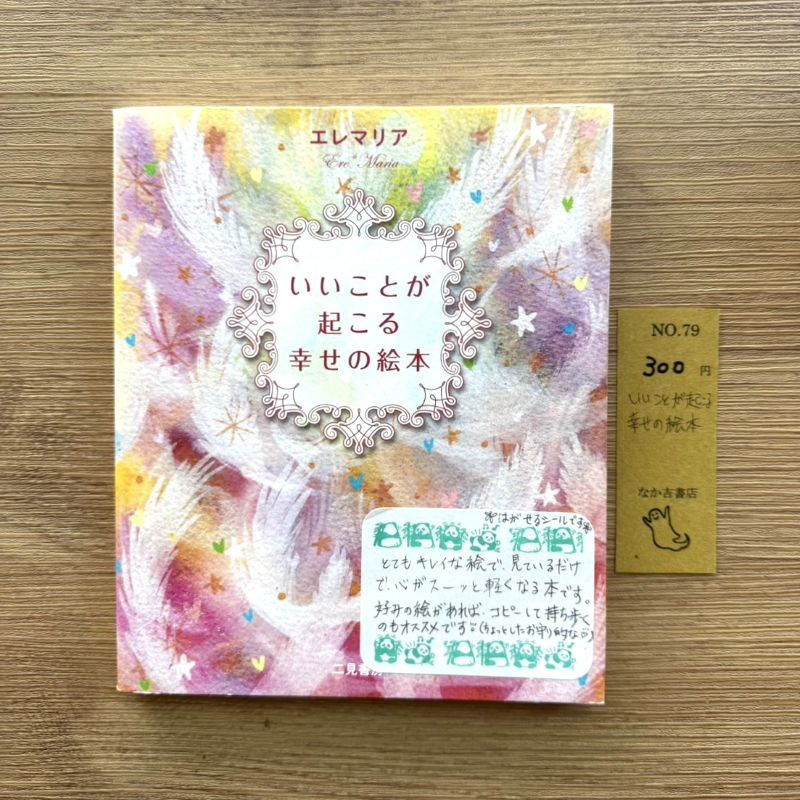 エレマリア
Ere*Maria
いいことが
起こる
幸せの絵本
※はがせるシールです※
とてもキレイな絵で、見ているだけ
で、心がスーッと軽くなる本です。
好みの絵があれば、コピーして持ち歩く
のもオススメです(ちょっとしたお守り的な)
二見書房
NO.79
300 円
いいことが起こる
幸せの絵本
なか吉書店